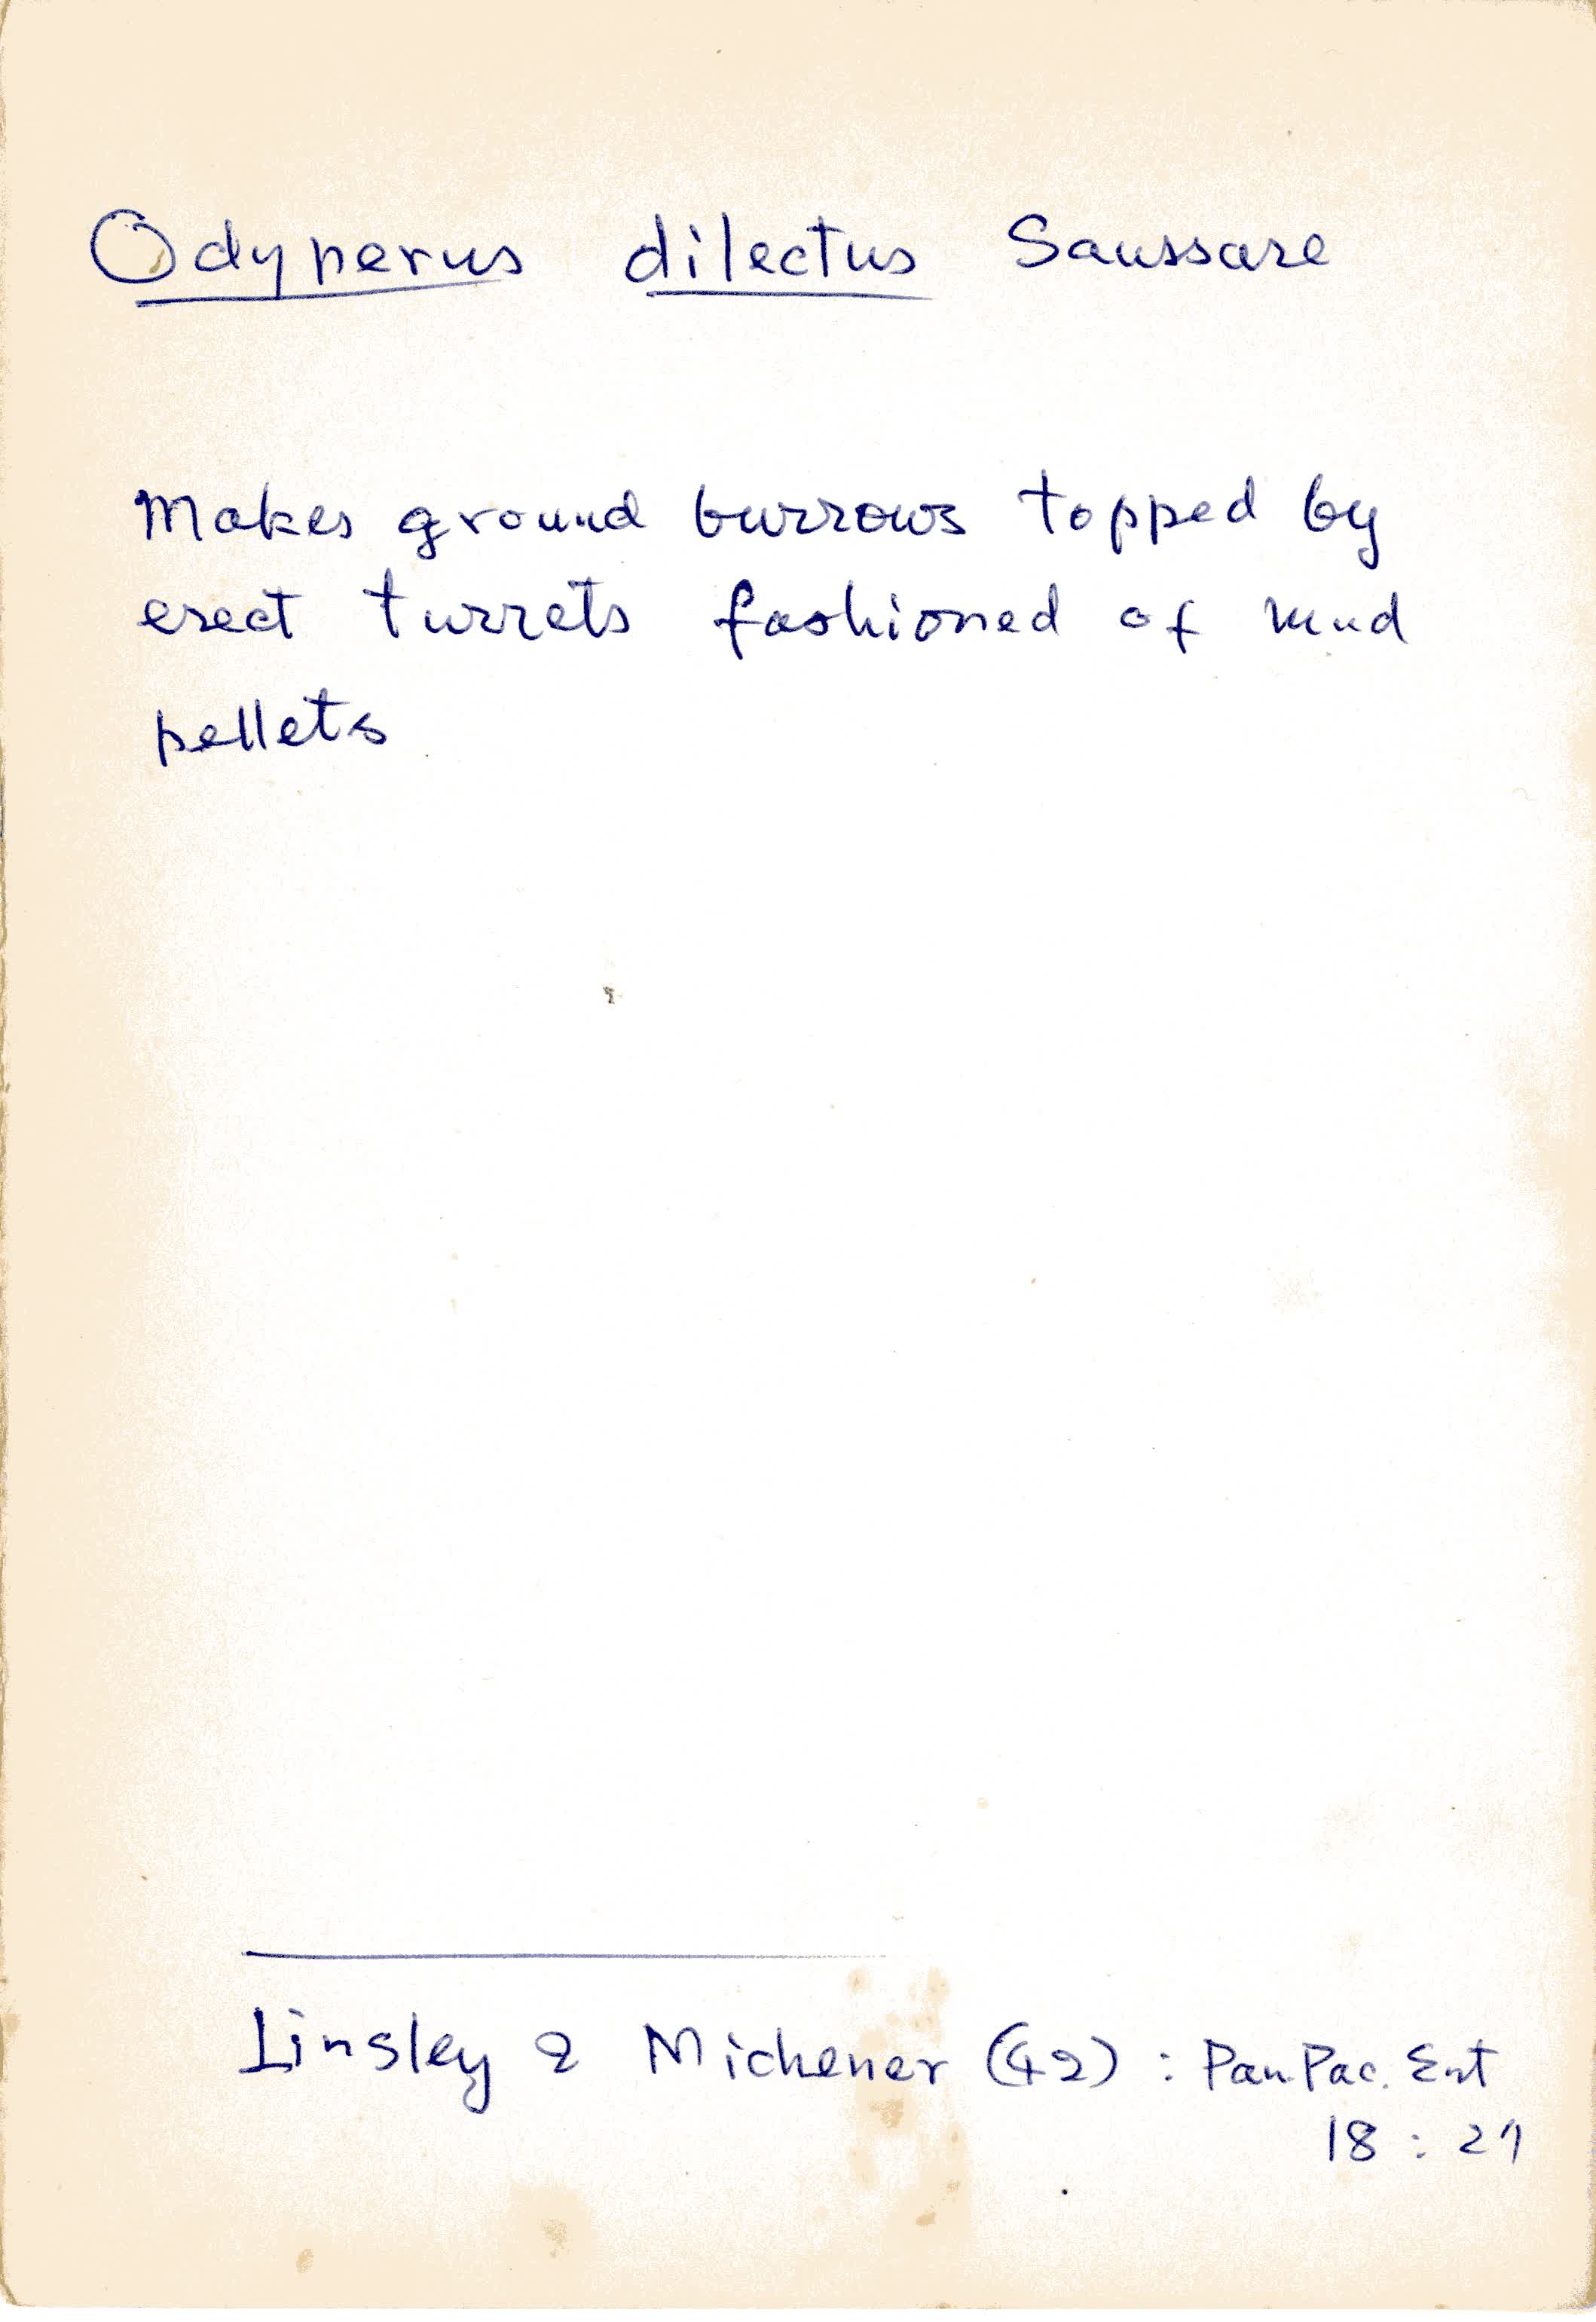 Odynerus dilectus Saussare
Makes ground burrows topped by
erect turrets fashioned of mud
pellets
Linsley & Michener (42) : Pan. Pac. Ent
18 : 27